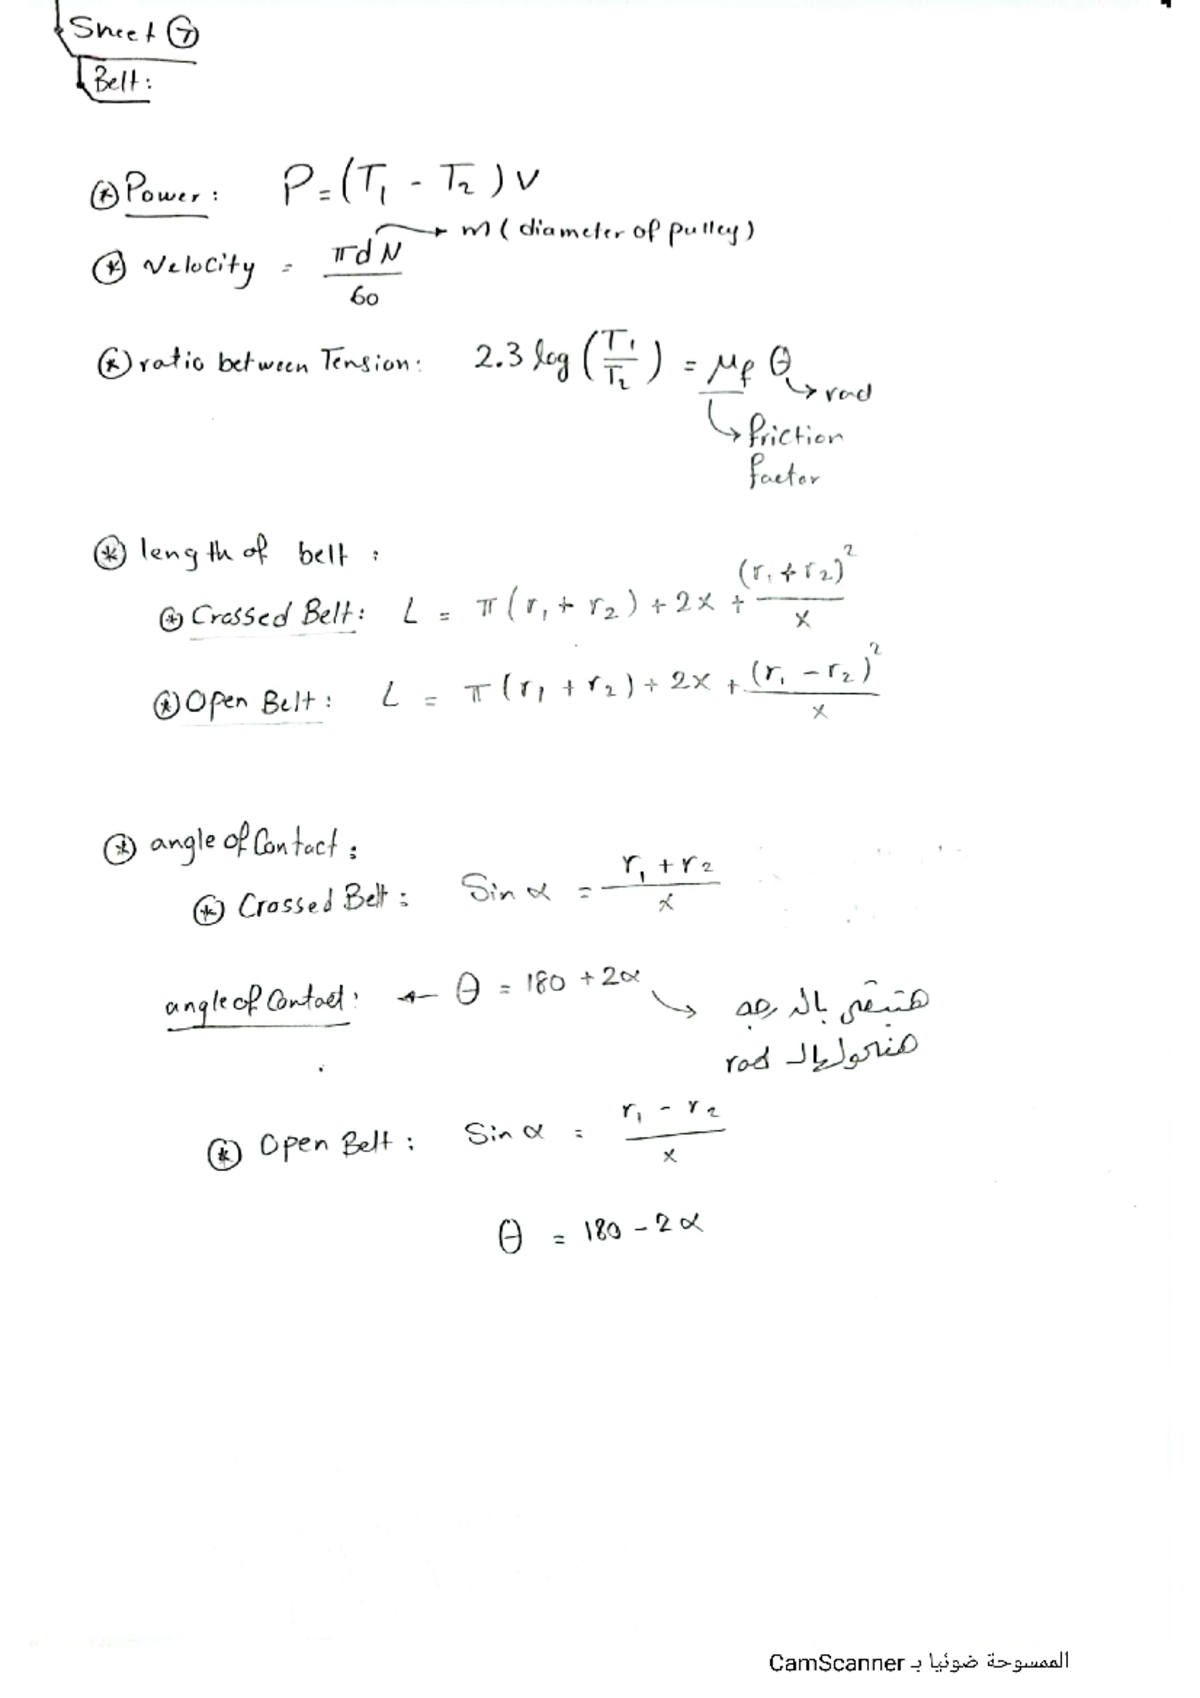 Sheet ⑦
Belt:
⊛ Power: P = (T₁ - T₂) V
→ m (diameter of pulley)
⊛ Velocity = πdN / 60
⊛ ratio between Tension: 2.3 log (T₁/T₂) = μf θ
→ rad
↳ friction
factor
⊛ length of belt:
⊛ Crossed Belt: L = π(r₁ + r₂) + 2x + (r₁ + r₂)² / x
⊛ Open Belt: L = π(r₁ + r₂) + 2x + (r₁ - r₂)² / x
⊛ angle of Contact:
⊛ Crossed Belt: Sin α = r₁ + r₂ / x
angle of Contact: ← θ = 180 + 2α
هتبقى بالدرجه
هنحولها لـ rad
⊛ Open Belt: Sin α = r₁ - r₂ / x
θ = 180 - 2α
الممسوحة ضوئيا بـ CamScanner